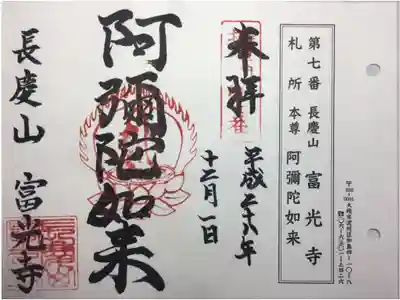 第七番 長慶山 富光寺
札所 本尊 阿彌陀如来
奉拝
平成二十八年
十二月一日
阿彌陀如来
長慶山 富光寺